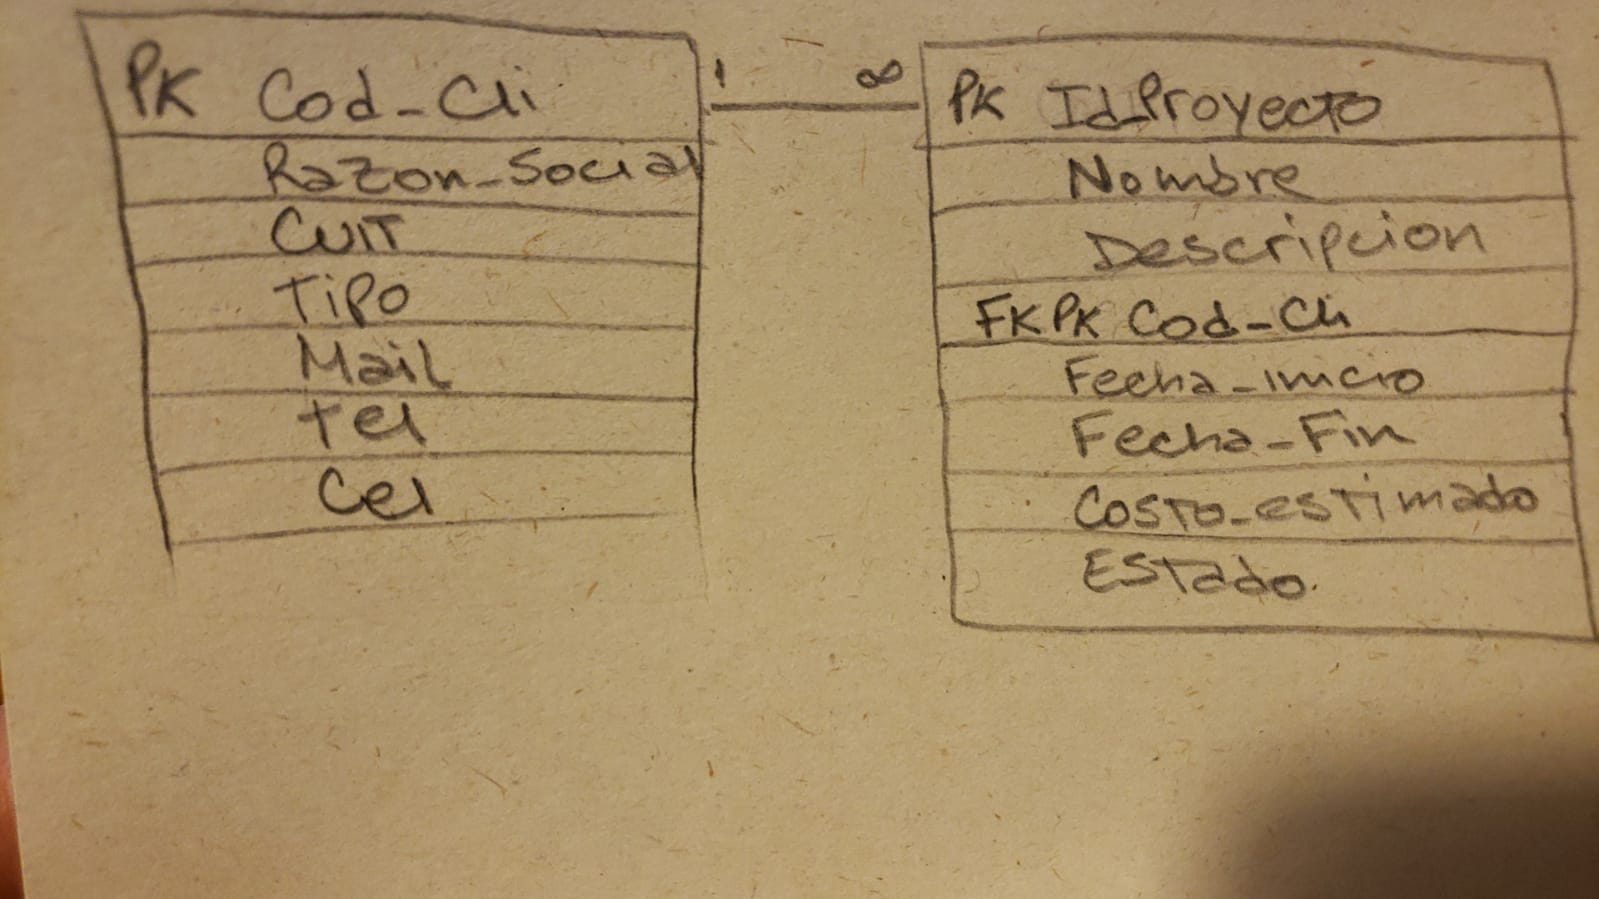 PK Cod_Cli
Razon_Social
CUIT
Tipo
Mail
Tel
Cel
1 ∞
PK Id_Proyecto
Nombre
Descripcion
FK PK Cod_Cli
Fecha_inicio
Fecha_Fin
Costo_estimado
Estado